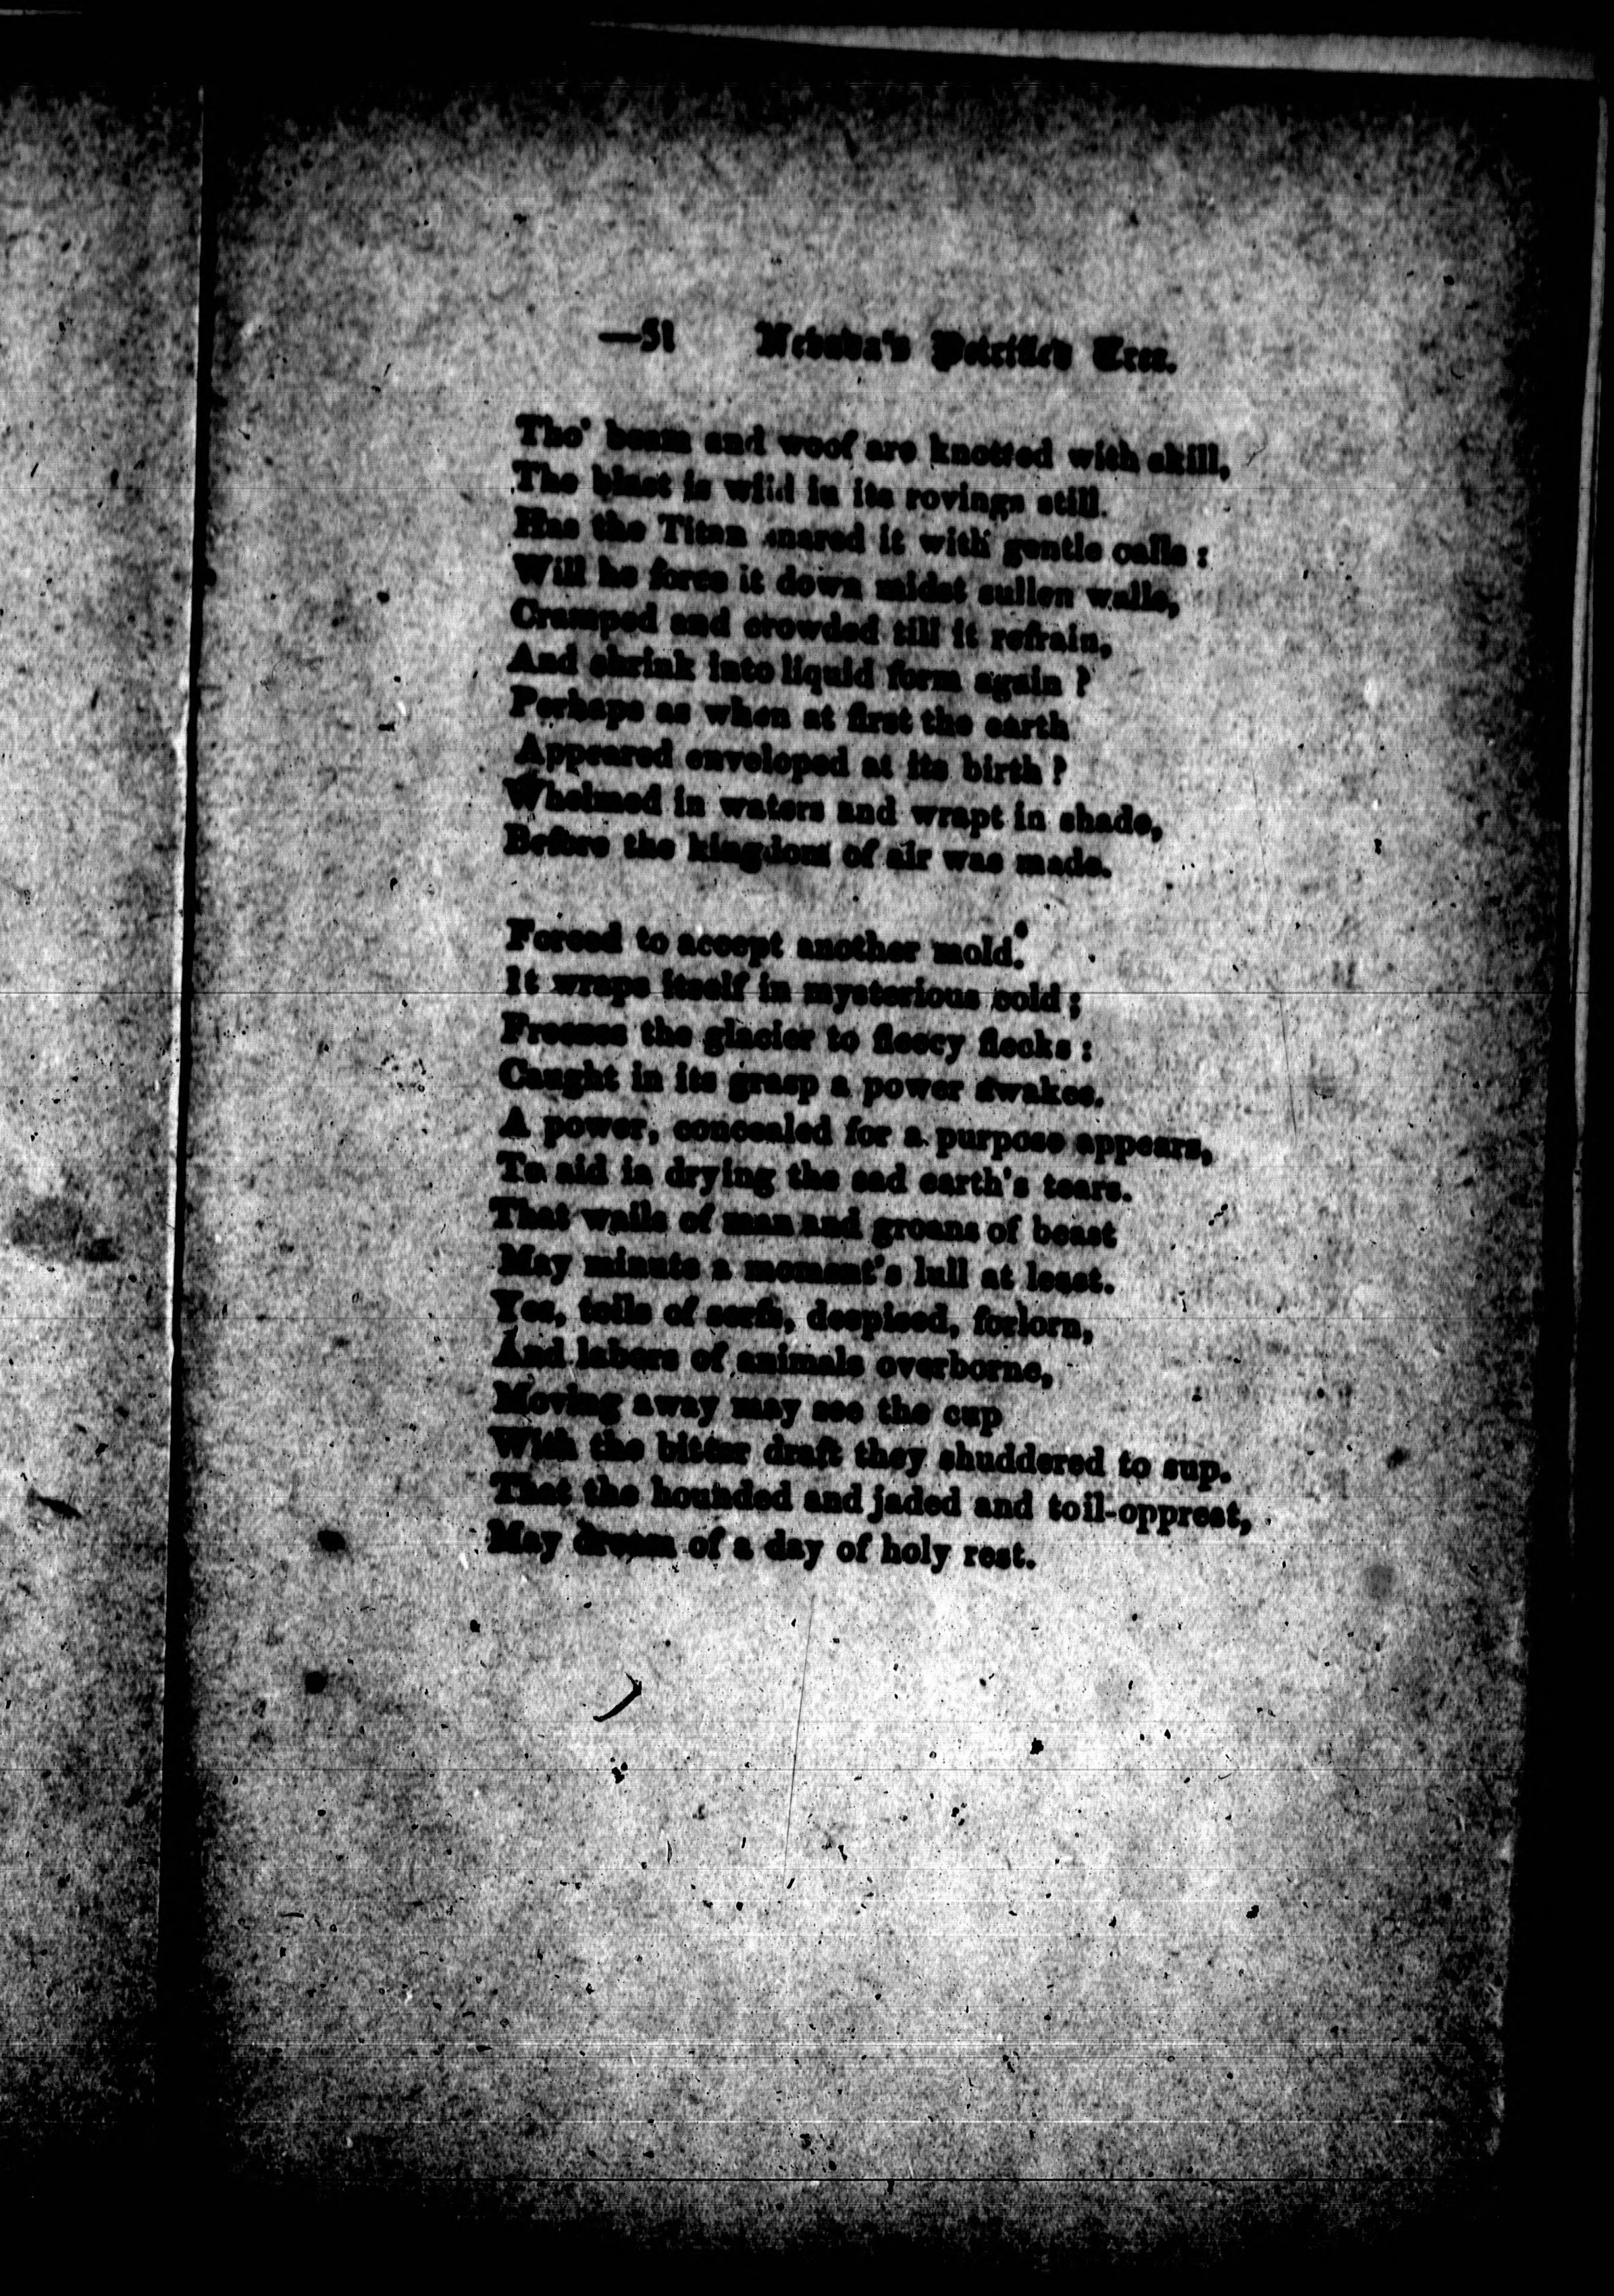 —51 Nevada's Petrified Tree.
Tho' beam and woof are knotted with skill,
The blast is wild in its rovings still.
Has the Titan snared it with gentle calls :
Will he force it down midst sullen walls,
Cramped and crowded till it refrain,
And shrink into liquid form again ?
Perhaps as when at first the earth
Appeared enveloped at its birth ?
Whelmed in waters and wrapt in shade,
Before the kingdom of air was made.
Forced to accept another mold.
It wraps itself in mysterious cold ;
Freezes the glacier to fleecy flecks :
Caught in its grasp a power awakes.
A power, concealed for a purpose appears,
To aid in drying the sad earth's tears.
That wails of man and groans of beast
May minute a moment's lull at least.
Yes, toils of serfs, despised, forlorn,
And labors of animals overborne,
Moving away may see the cup
With the bitter draft they shuddered to sup.
That the hounded and jaded and toil-opprest,
May dream of a day of holy rest.